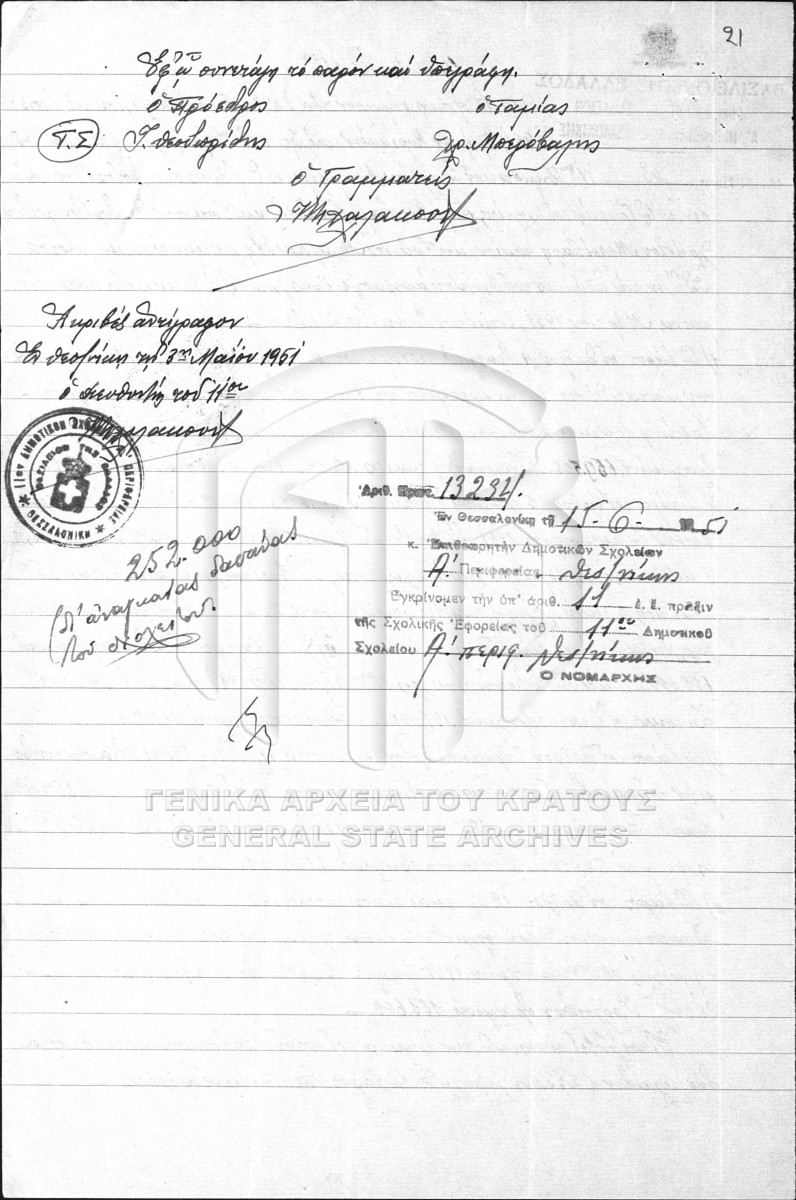 21
Ἐφ' ᾧ συνετάγη τὸ παρὸν καὶ ὑπεγράφη.
ὁ Πρόεδρος ὁ Ταμίας
Τ.Σ Ι. Θεοδωρίδης Χρ.
ὁ Γραμματεὺς
Ἀκριβὲς ἀντίγραφον
Ἐν Θεσ/νίκῃ τῇ 3ῃ Μαΐου 1951
ὁ Διευθυντὴς τοῦ 11ου
11ον ΔΗΜΟΤΙΚΟΝ ΣΧΟΛΕΙΟΝ Α' ΠΕΡΙΦΕΡΕΙΑΣ
ΒΑΣΙΛΕΙΟΝ ΤΗΣ ΕΛΛΑΔΟΣ
ΘΕΣΣΑΛΟΝΙΚΗ
252.000
δι' ἀναγκαίας δαπάνας
τοῦ σχολείου.
Ἀριθ. Πρωτ. 13234.
Ἐν Θεσσαλονίκῃ τῇ 15-6-1951
κ. Ἐπιθεωρητὴν Δημοτικῶν Σχολείων
Α' Περιφερείας Θεσ/νίκης
Ἐγκρίνομεν τὴν ὑπ' ἀριθ. 11 ἐ. ἔ. πρᾶξιν
τῆς Σχολικῆς Ἐφορείας τοῦ 11ου Δημοτικοῦ
Σχολείου Α' περιφ. Θεσ/νίκης
Ο ΝΟΜΑΡΧΗΣ
ΓΕΝΙΚΑ ΑΡΧΕΙΑ ΤΟΥ ΚΡΑΤΟΥΣ
GENERAL STATE ARCHIVES